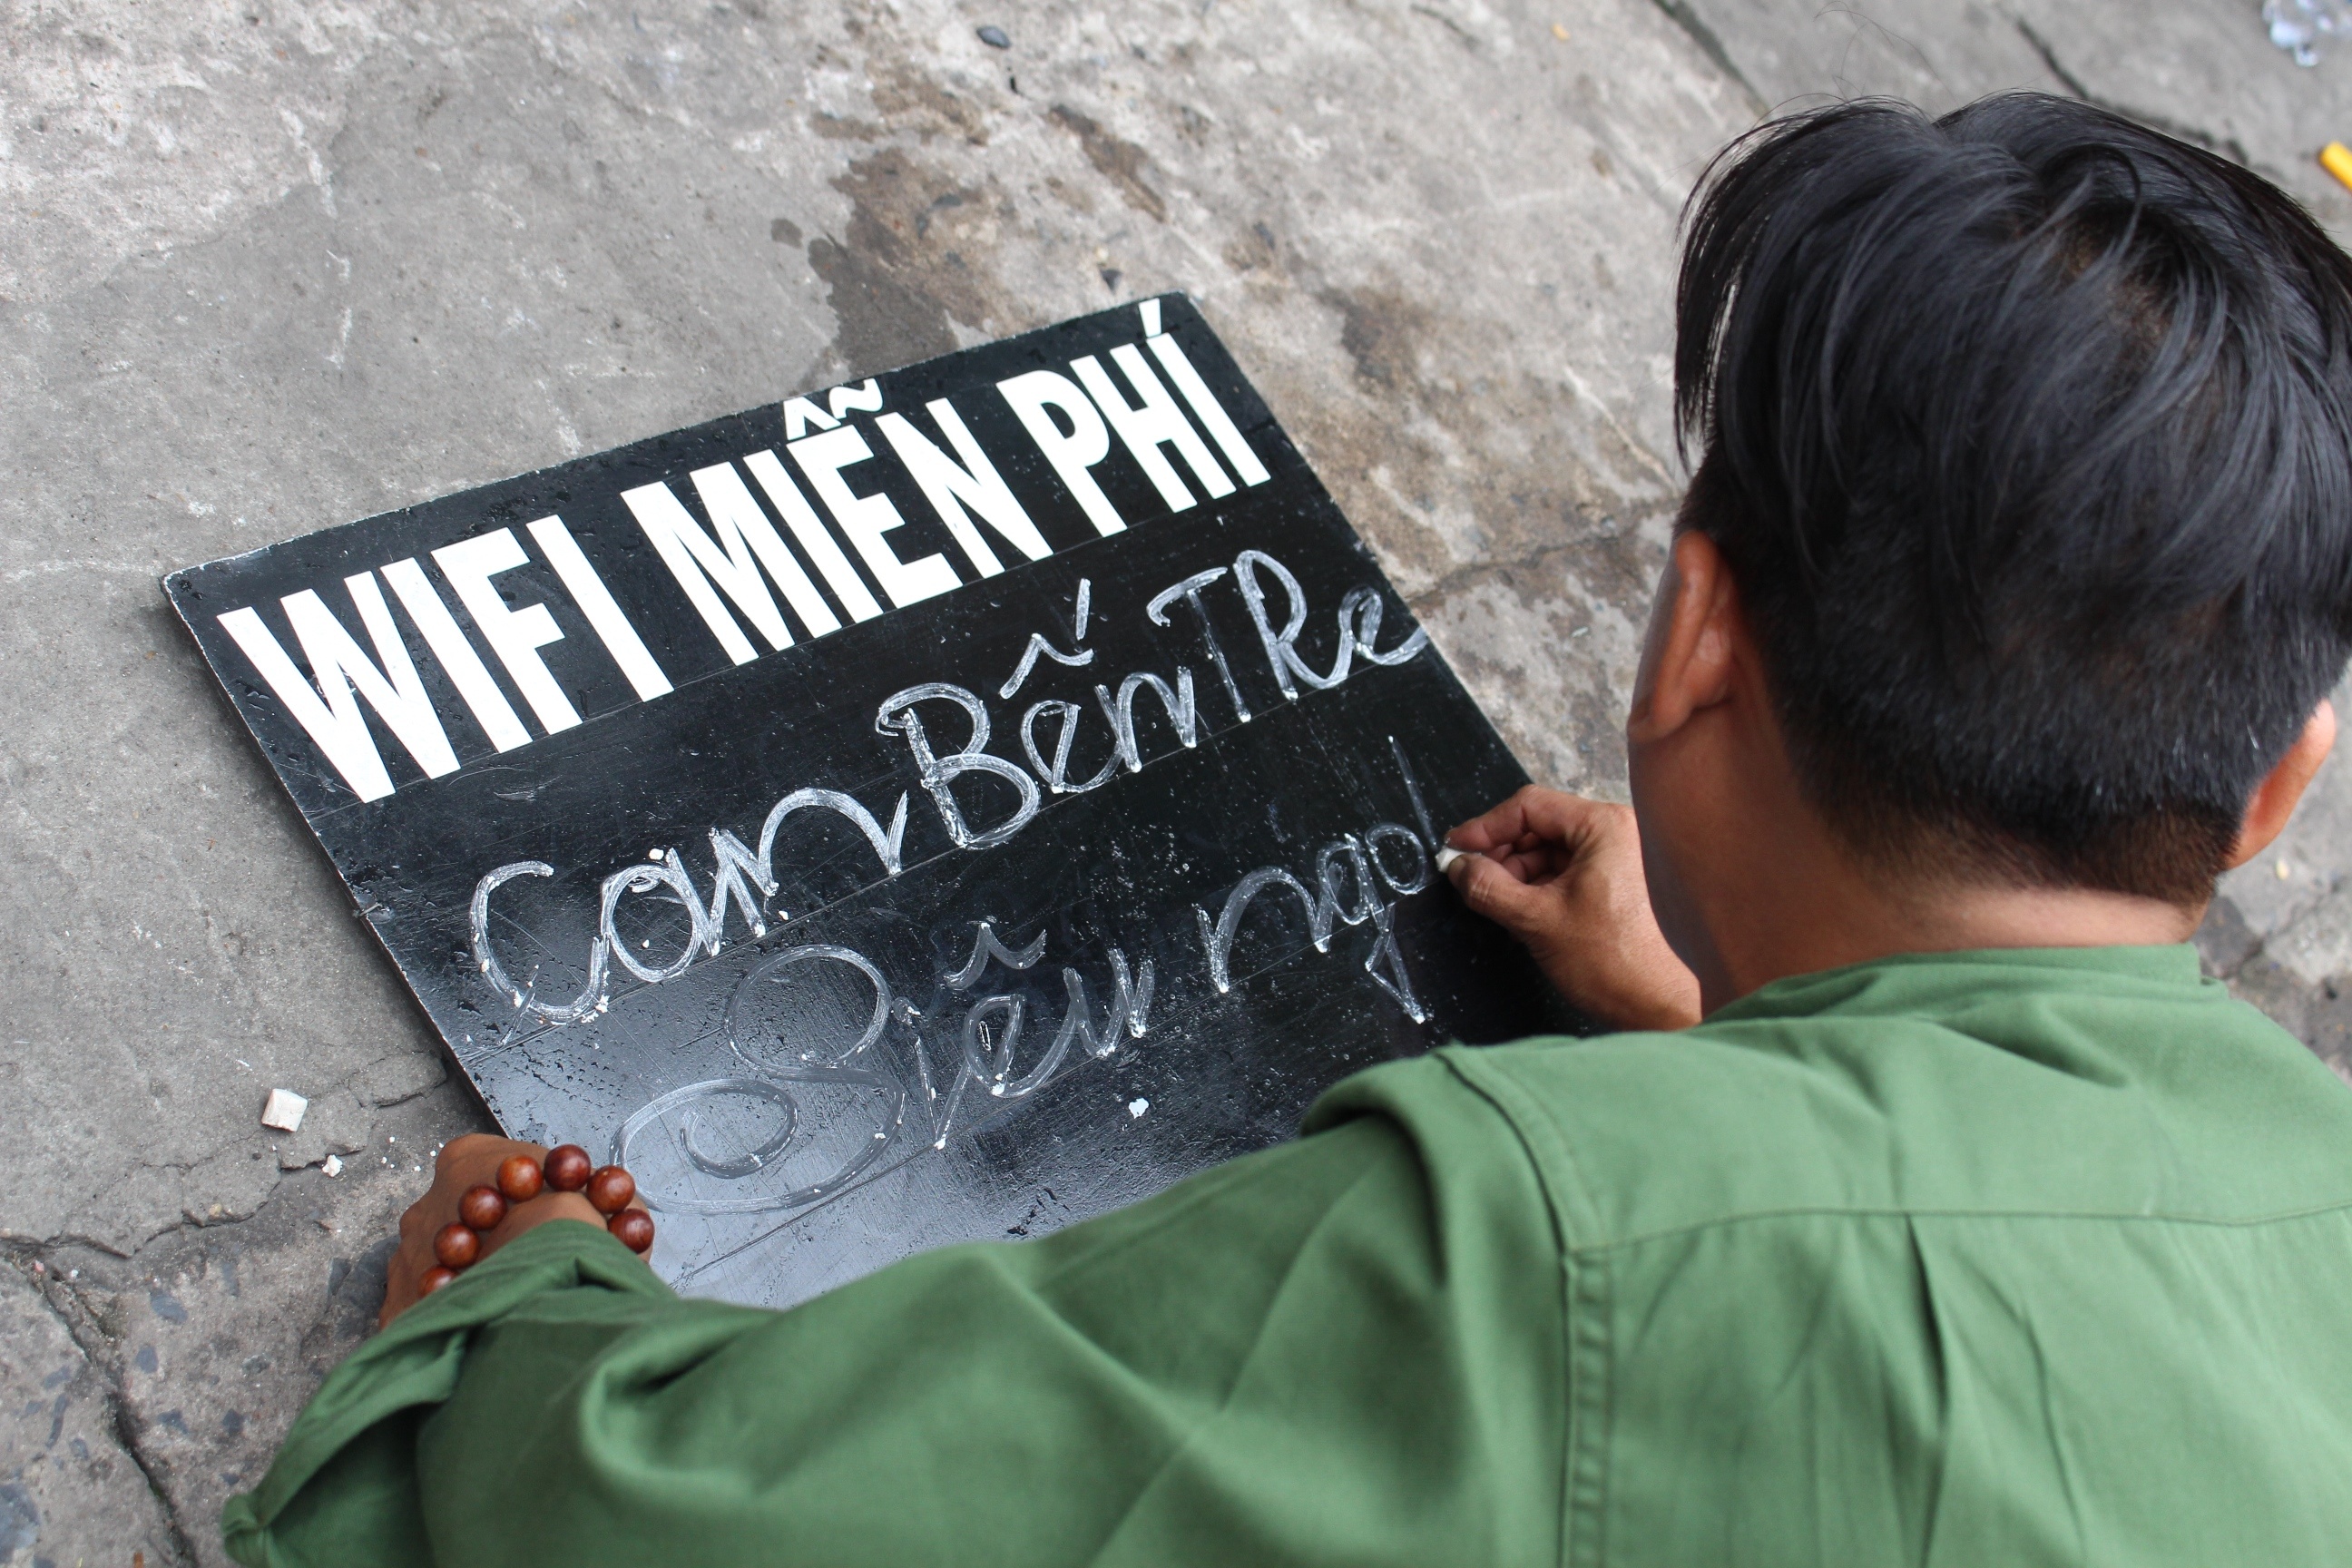 WIFI MIỄN PHÍ
Cam Bến TRe
Siêu ngọ